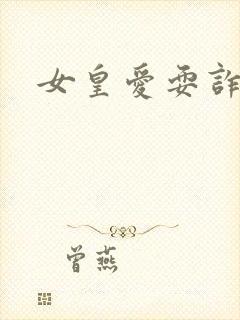 女皇愛耍詐
曾燕